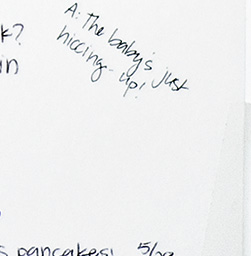 k?
in
A: The baby's just
hiccing-up!
s pancakes! 5/29